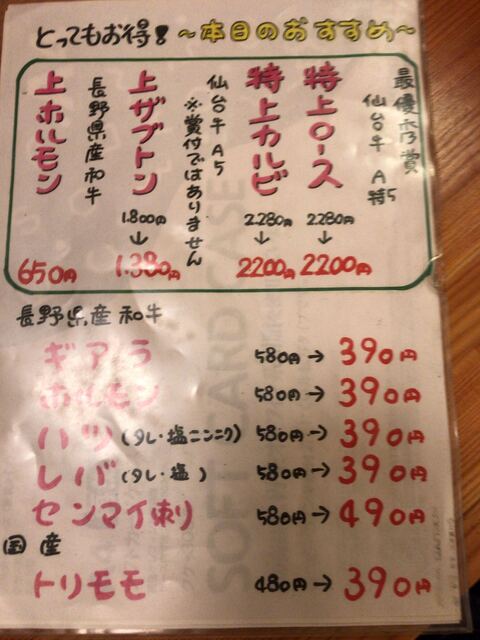 とってもお得! ~本日のおすすめ~
最優秀賞
仙台牛 A5
特
特上ロース
2.280円
↓
2200円
特上カルビ
2.280円
↓
2200円
仙台牛 A5
※賞付ではありません
上ザブトン
1.800円
↓
1.380円
長野県産和牛
上ホルモン
650円
長野県産和牛
ギアラ 580円→390円
ホルモン 580円→390円
ハツ(タレ・塩ニンニク) 580円→390円
レバ(タレ・塩) 580円→390円
センマイ刺り 580円→490円
国産
トリモモ 480円→390円
SOFT CARD CASE